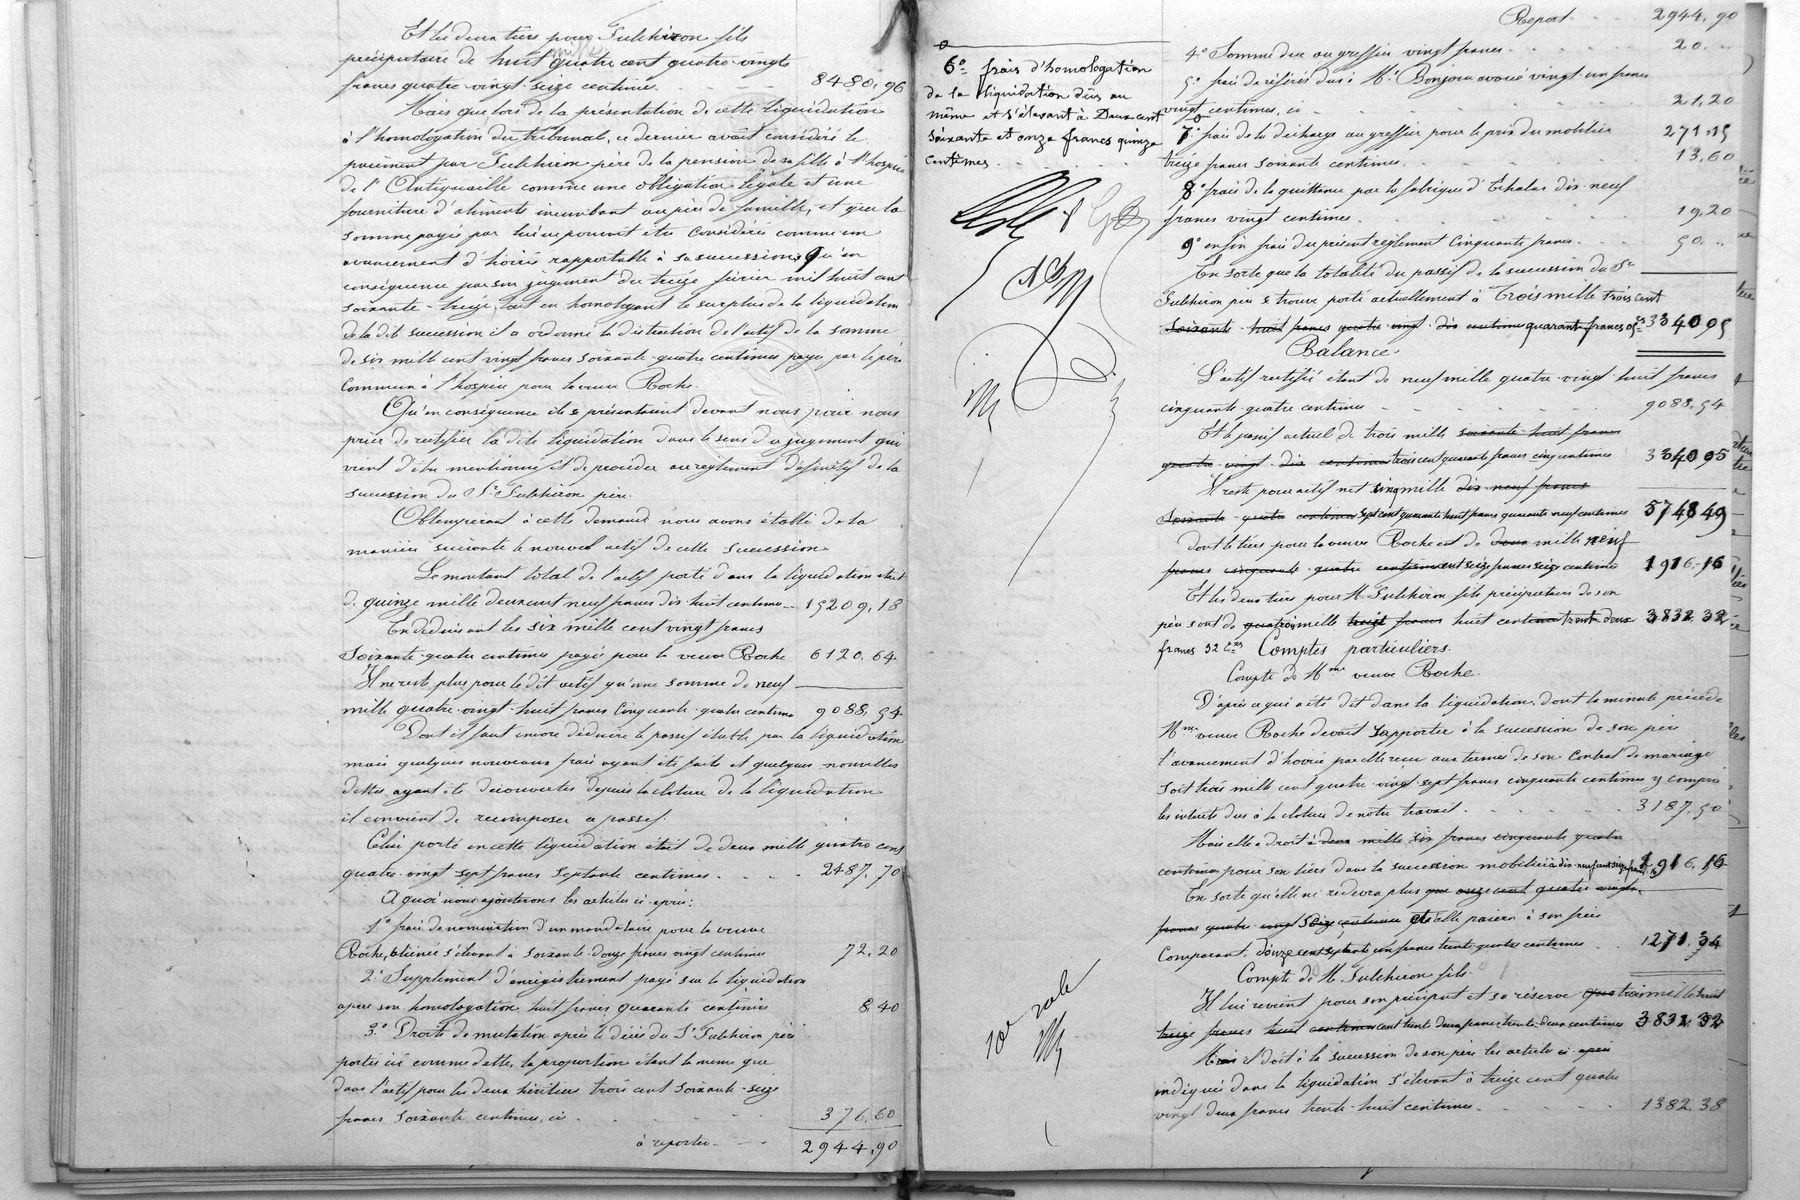 Et les deux tiers pour Fulchiron fils
préciputaire de huit mille quatre cent quatre-vingts
francs quatre-vingt-seize centimes 8480,96
Mais que lors de la présentation de cette liquidation
à l'homologation du tribunal, ce dernier avait considéré le
paiement par Fulchiron père de la pension de sa fille à l'hospice
de l'Antiquaille comme une obligation légale et une
fourniture d'aliments incombant au père de famille, et que la
somme payée par lui ne pouvait être considérée comme un
avancement d'hoirie rapportable à sa succession, Qu'en
conséquence par son jugement du treize février mil huit cent
soixante-treize, tout en homologuant le surplus de la liquidation
de la dite succession il a ordonné la distraction de l'actif de la somme
de six mille cent vingt francs soixante-quatre centimes payé par le père
commun à l'hospice pour la veuve Roche.
Qu'en conséquence ils se présentaient devant nous pour nous
prier de rectifier la dite liquidation dans le sens du jugement qui
vient d'être mentionné et de procéder au règlement définitif de la
succession du Sr Fulchiron père.
Obtempérant à cette demande nous avons établi de la
manière suivante le nouvel actif de cette succession
Le montant total de l'actif porté dans la liquidation était
de quinze mille deux cent neuf francs dix-huit centimes 15209,18
En déduisant les six mille cent vingt francs
soixante-quatre centimes payés pour la veuve Roche 6120,64
Il ne reste plus pour le dit actif qu'une somme de neuf
mille quatre-vingt-huit francs cinquante-quatre centimes 9088,54
Dont il faut encore déduire le passif établi par la liquidation
mais quelques nouveaux frais ayant été faits et quelques nouvelles
dettes ayant été découvertes depuis la cloture de la liquidation
il convient de recomposer ce passif.
Celui porté en cette liquidation était de deux mille quatre cent
quatre-vingt sept francs septante centimes 2487,70
A quoi nous ajouterons les articles ci-après:
1° frais de nomination d'un mandataire pour la veuve
Roche, aliénée s'élevant à soixante-douze francs vingt centimes 72,20
2° Supplément d'enregistrement payé sur la liquidation
après son homologation huit francs quarante centimes 8,40
3° Droits de mutation après le décès du Sr Fulchiron père
portés ici comme dette, la proportion étant la même que
dans l'actif pour les deux héritiers trois cent soixante-seize
francs soixante centimes, ci 376,60
à reporter 2944,90
6° frais d'homologation
de la liquidation dûs au
même et s'élevant à Deux cent
soixante et onze francs quinze
centimes
10e rôle
Report 2944,90
4° Somme due au greffier vingt francs 20
5° frais de référés dus à Me Bonjour avoué vingt-un francs
vingt centimes, ci 21,20
271,15
7° frais de la décharge au greffier pour le prix du mobilier
treize francs soixante centimes 13,60
8° frais de la quittance par la fabrique d'Echalas dix-neuf
francs vingt centimes 19,20
9° enfin frais du présent règlement Cinquante francs 50
En sorte que la totalité du passif de la succession du Sr
Fulchiron père se trouve porté actuellement à trois mille trois cent
soixante-huit francs quatre-vingt-dix centimes quarante francs 05 3340 05
Balance
L'actif rectifié étant de neuf mille quatre-vingt-huit francs
cinquante-quatre centimes 9088,54
Et le passif actuel de trois mille soixante-huit francs
quatre-vingt-dix centimes trois cent quarante francs cinq centimes 3340 05
Il reste pour actif net cinq mille dix-neuf francs
soixante-quatre centimes sept cent quarante huit francs quarante neuf centimes 5748 49
dont le tiers pour la veuve Roche est de deux mille neuf
francs cinquante-quatre centimes cent seize francs seize centimes 1916,16
Et les deux tiers pour M. Fulchiron fils préciputaire de son
père sont de quatre trois mille treize francs huit centimes cent trente deux 3832 32
francs 32 Ces Comptes particuliers.
Compte de Mme veuve Roche.
D'après ce qui a été dit dans la liquidation, dont la minute précède
Mme veuve Roche devait rapporter à la succession de son père
l'avancement d'hoirie par elle reçu aux termes de son Contrat de mariage
soit trois mille cent quatre-vingt-sept francs cinquante centimes y compris
les intérêts dus à la cloture de notre travail 3187,50
Mais elle a droit à deux mille six francs cinquante quatre
centimes pour son tiers dans la succession mobilière à dix-neuf cent seize francs 16 1916,16
En sorte qu'elle ne redevra plus que onze cent quatre-vingt
francs quatre-vingt seize centimes et elle paiera à son frère
Comparant, douze cent septante un francs trente quatre centimes 1271,34
Compte de M. Fulchiron fils.
Il lui revient pour son préciput et sa réserve quatre trois mille huit
treize francs huit centimes cent trente deux francs trente deux centimes 3832 32
Mais il doit à la succession de son père les articles ci-après
indiqués dans la liquidation s'élevant à treize cent quatre
vingt deux francs trente-huit centimes 1382,38